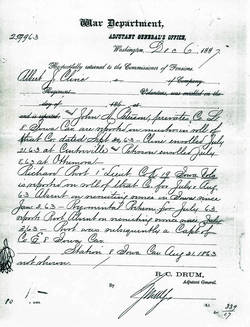 War Department,
ADJUTANT GENERAL'S OFFICE,
Washington, Dec 6, 1887
Respectfully returned to the Commissioner of Pensions.
Albert J. Cline
of Company
Regiment Volunteers, was enrolled on the
day of 186
and is reported John A. privates Co.
8 Iowa Cav are reported on muster in roll of
that Co. dated Sept 30, 63 Cline enrolled July
63 at Centerville enrolled July
63 at Ottumwa.
Richard Root 1" Lieut Co 19 Iowa Vols
is reported on roll of that Co. for July & Aug
63 Absent on recruiting service in Iowa since
June 63 Regimental Return for July 63
reports Root Absent on recruiting service since
63 Root was subsequently a Capt of
Co E 8 Iowa Cav.
Station 8 Iowa Cav Aug 31 1863
not shown
R. C. DRUM,
Adjutant General.